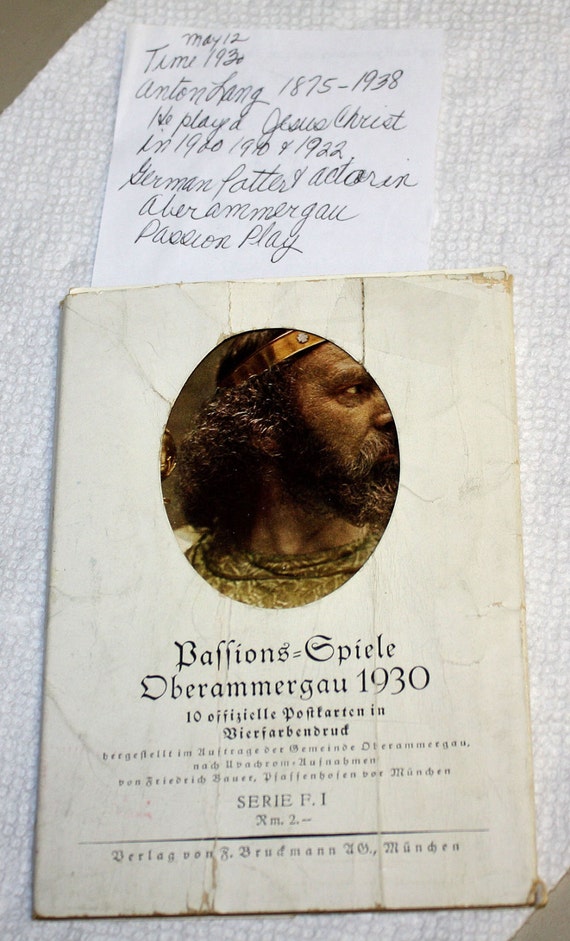 may 12
Time 1930
Anton Lang 1875-1938
He played Jesus Christ
in 1900 1910 & 1922
German Potter & actor in
Oberammergau
Passion Play
Paſſions=Spiele
Oberammergau 1930
10 offizielle Poſtkarten in
Vierfarbendruck
hergeſtellt im Auftrage der Gemeinde Oberammergau,
nach Uvachrom=Aufnahmen
von Friedrich Bauer, Pfaffenhofen vor München
SERIE F. I
Rm. 2.—
Verlag von F. Bruckmann AG., München